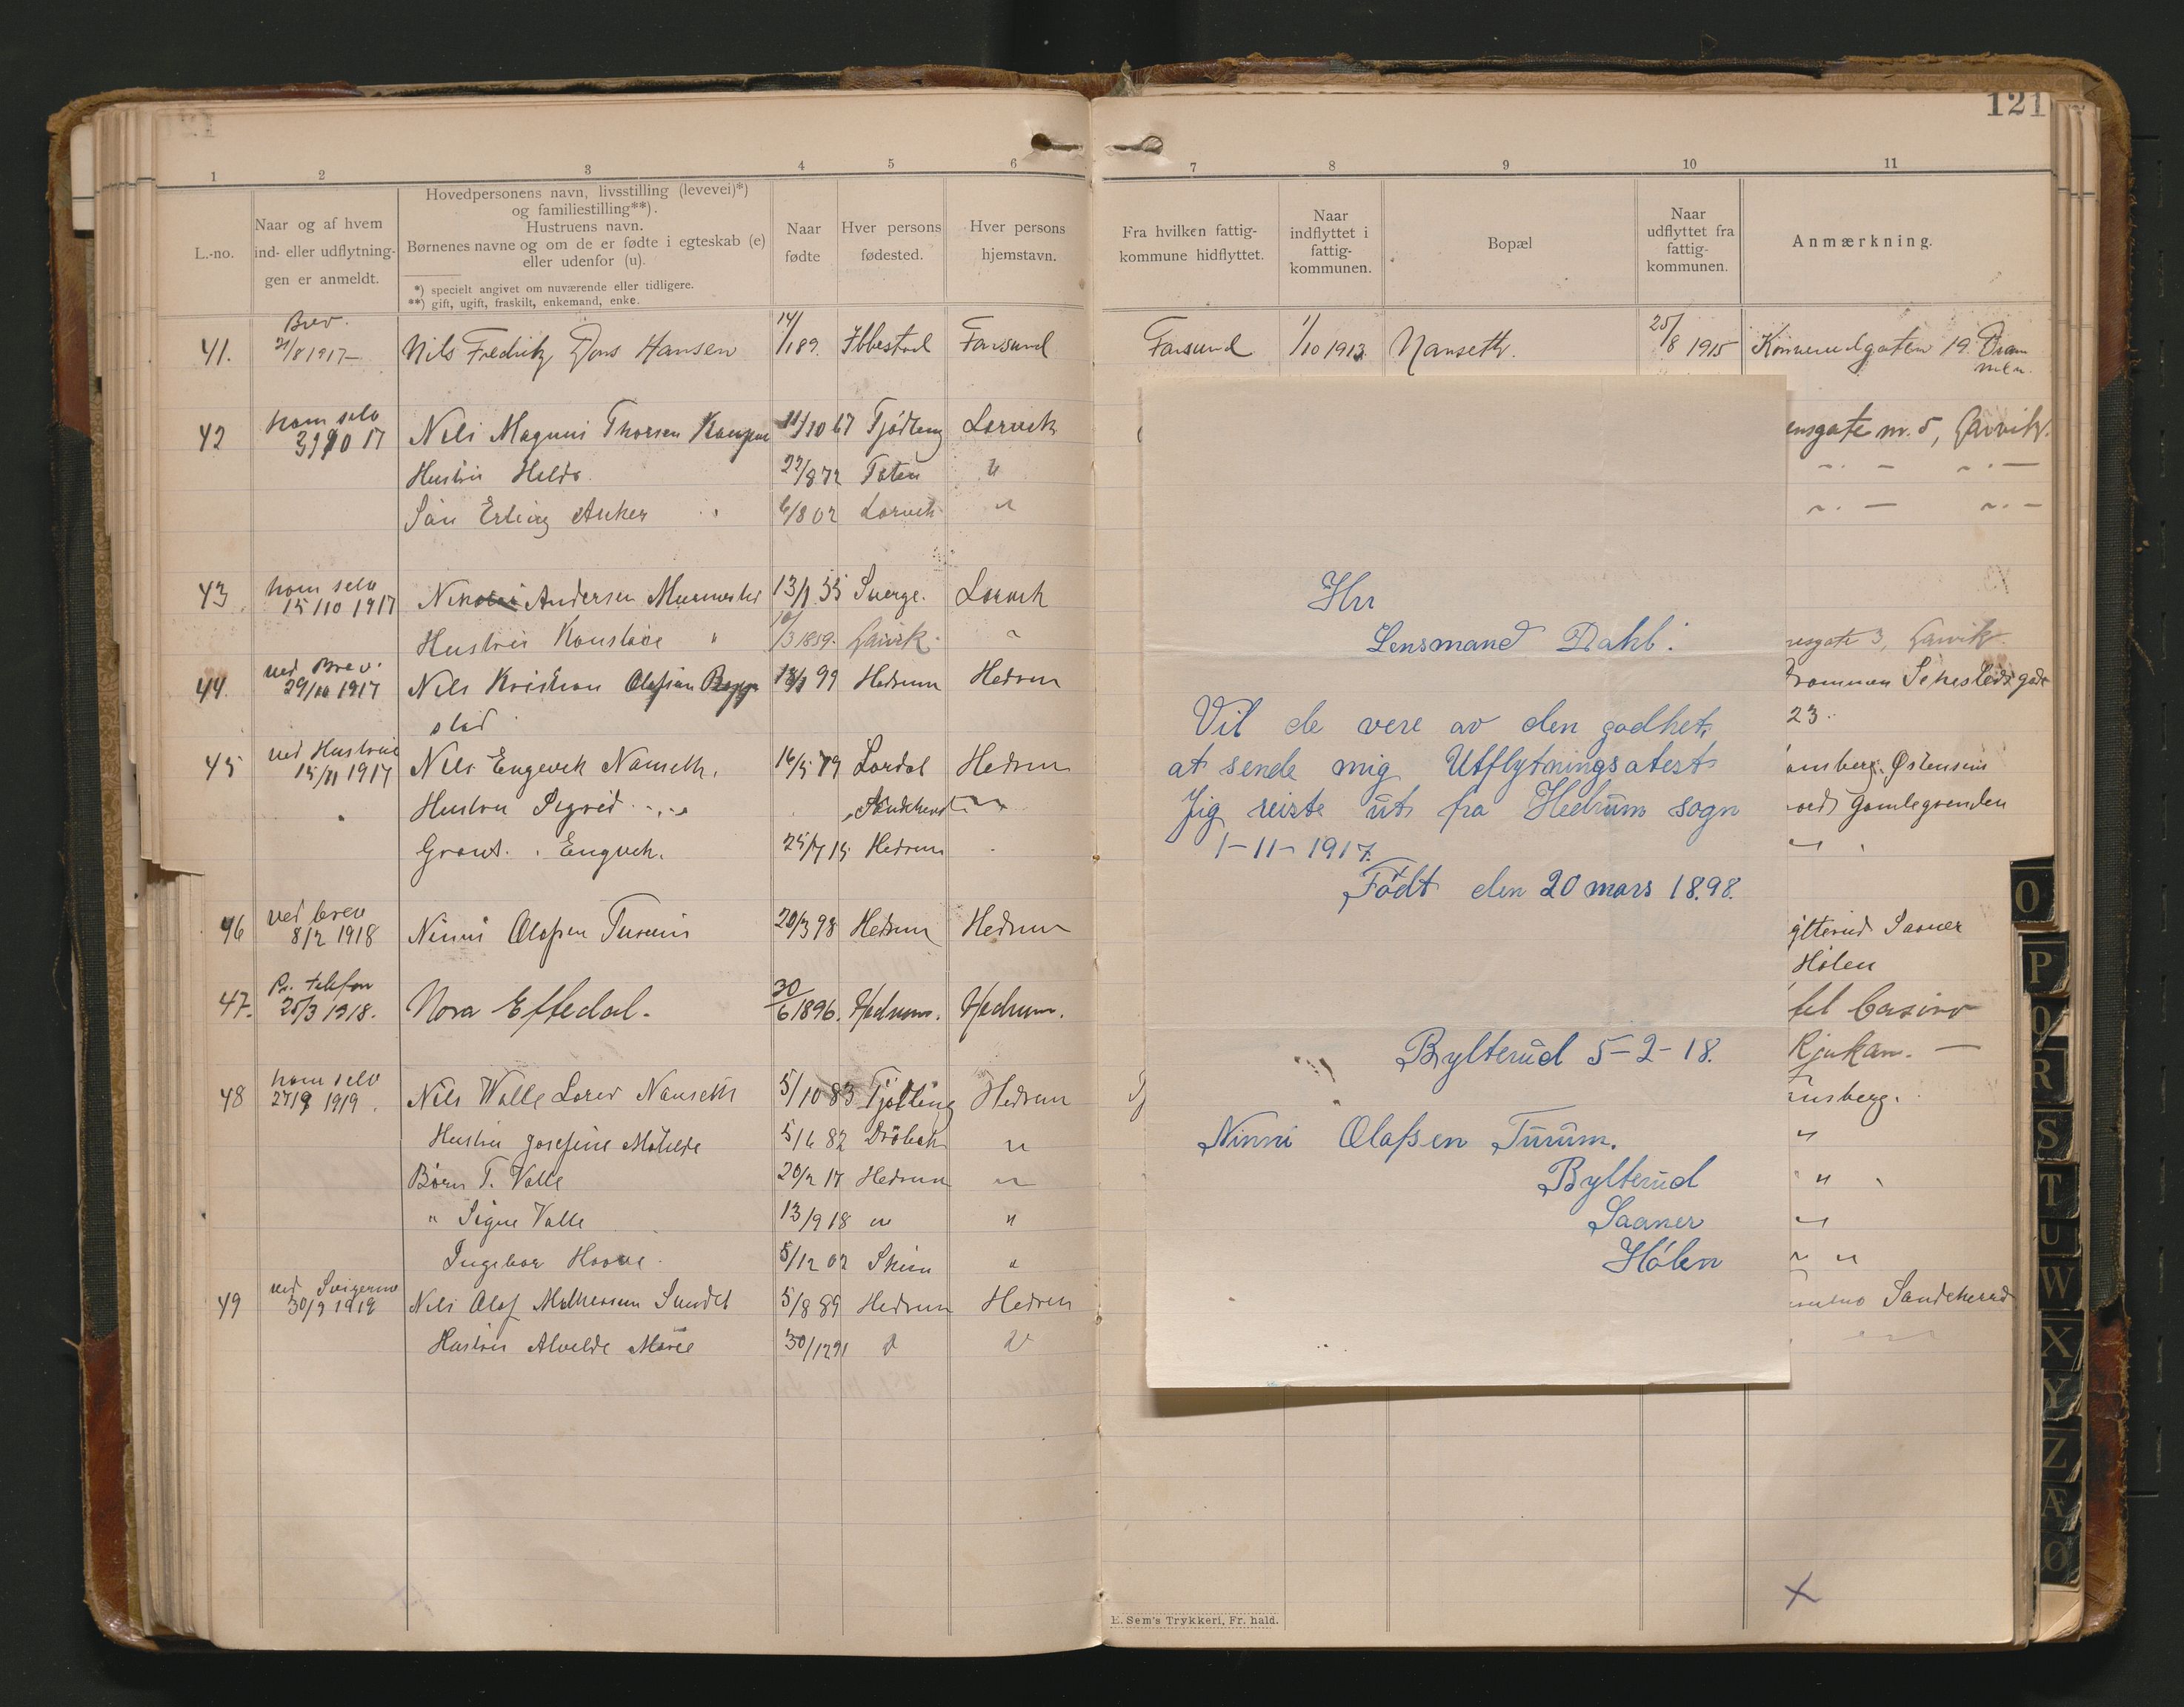 121
1 2 3 4 5 6 7 8 9 10 11
L.-no.
Naar og af hvem
ind- eller udflytnin-
gen er anmeldt.
Hovedpersonens navn, livsstilling (levevei)*)
og familiestilling**).
Hustruens navn.
Børnenes navne og om de er fødte i egteskab (e)
eller udenfor (u).
*) specielt angivet om nuværende eller tidligere.
**) gift, ugift, fraskilt, enkemand, enke.
Naar
fødte
Hver persons
fødested.
Hver persons
hjemstavn.
Fra hvilken fattig-
kommune hidflyttet.
Naar
indflyttet i
fattig-
kommunen.
Bopæl
Naar
udflyttet fra
fattig-
kommunen.
Anmærkning.
Brev.
41. 21/8 1917 Nils Fredrik Dons Hansen 14/1 89. Ibbestad Farsund Farsund 1/10 1913. Nanseth. 25/8 1915 Konnerudgaten 19. Dram
men.
ham selv
42 Nils Magnus Thorsen 11/10 67 Tjødling Larvik ensgate nr. 5, Larvik.
Hustru 22/8 72 Toten "
Søn Erling Anker " 6/8 02 Larvik "
ham selv
43 15/10 1917 Andersen Murmester 13/1 35 Sverge. Larvik
Hustru " /3 1859. Larvik. " nesgate 3, Larvik.
ved Brev.
44. 29/10 1917 Nils Kristian Olafsen 99 Hedrum Hedrum
stad 23.
ved Hustrue
45 15/11 1917 Nils Engevck Nanseth. 16/5 79 Lardal Hedrum
Hustru Sigrid
Engvek. 25/7 15 Hedrum gamlegrenden
ved brev
46 8/2 1918 Ninni Olafsen Turum 20/3 98 Hedrum Hedrum ylterud Saaner
Hølen
Pr. telefon
47. 25/3 1918. Nora Eftedal. 30/6 1896. Hedrum. Hedrum. tel Casino
Rjukan. —
ham selv
48 1919. Nils Walle Lorer Nanseth 5/10 83 Tjølling Hedrum nsberg.
Hustru Josefine Matilde 5/6 82 Drøbak " "
Børn T. Valle 20/2 17 Hedrum " "
" Signe Valle 13/9 18 " " "
Ingebor 5/12 02 Skien " " "
49 30/9 1919 Nils Olaf Mathessen Sundet 5/8 89 Hedrum Hedrum Sandeherred
Hustru Alvilde Marie 30/12 91 " "
Hrr
Lensmand Dahl.
Vil de vere av den godhet,
at sende mig Utflytningsatest
Jig reiste ut fra Hedrum sogn
1-11-1917.
Født den 20 mars 1898.
Bylterud 5-2-18.
Ninni Olafsen Turum.
Bylterud
Saaner
Hølen
E. Sem's Trykkeri, Fr. hald.
O
P
Q
R
S
T
U
W
X
Y
Z
Æ
Ø